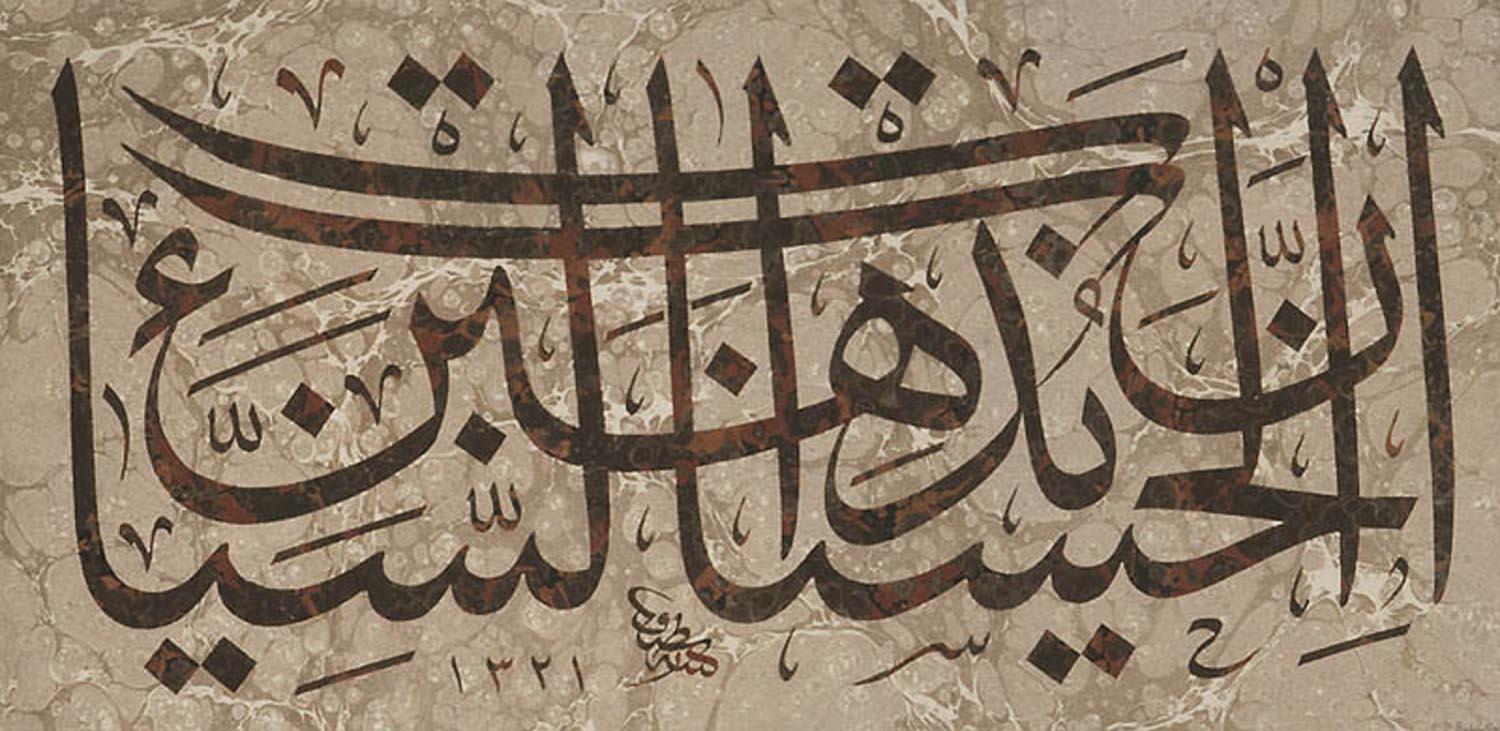 اِنَّ الْحَسَنَاتِ يُذْهِبْنَ السَّيِّئَاتِ
١٣٢١